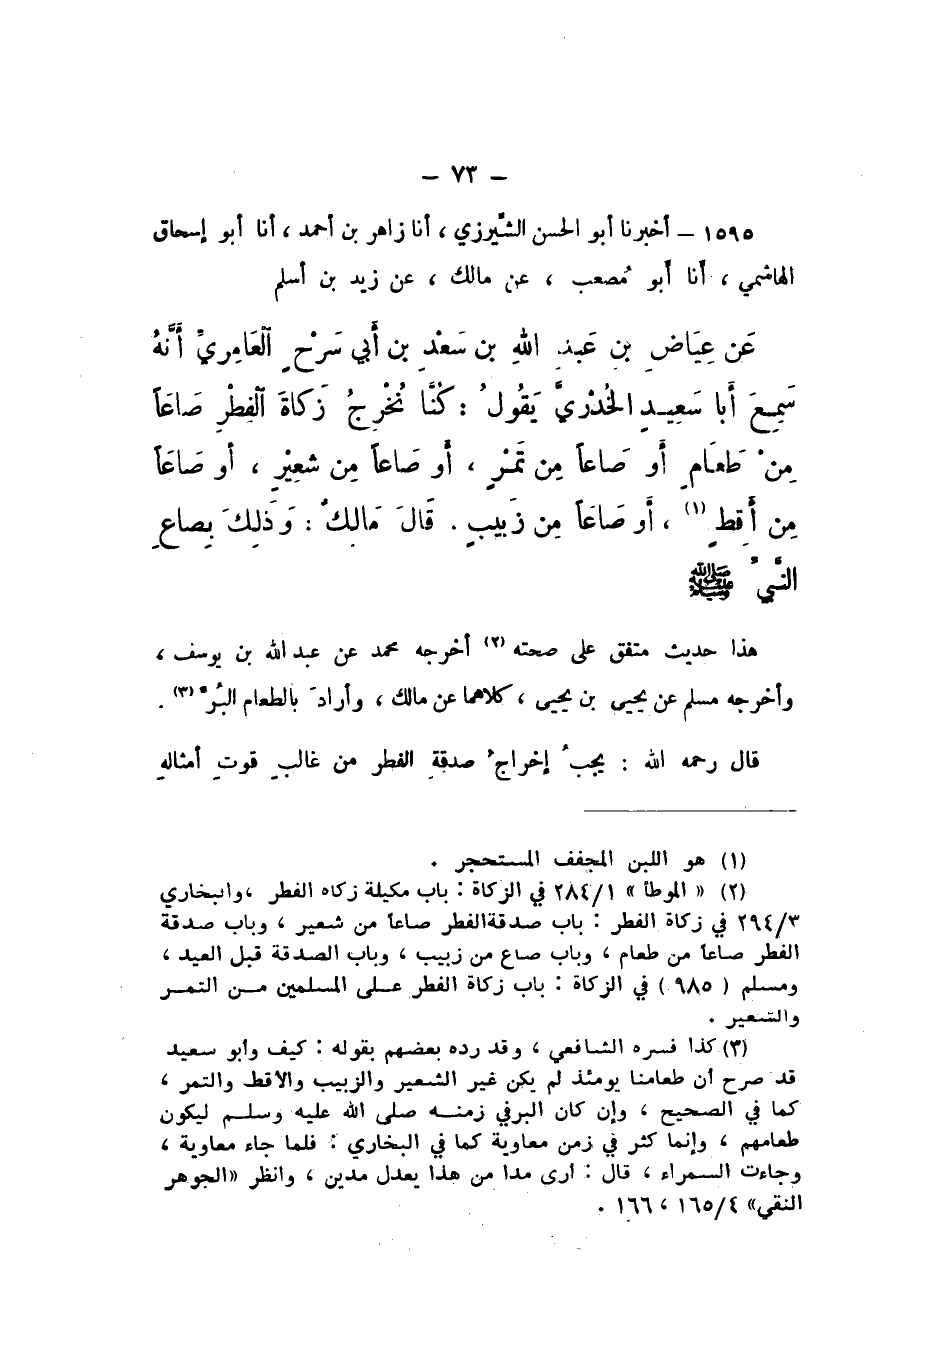 – ٧٣ –
١٥٩٥ – أخبرنا أبو الحسن الشّيرزي ، أنا زاهر بن أحمد ، أنا أبو إسحاق
الهاشمي ، أنا أبو مُصعب ، عن مالك ، عن زيد بن أسلم
عَن عِيَاضِ بنِ عَبدِ اللهِ بنِ سَعْدِ بنِ أَبي سَرْحٍ العَامِرِيِّ أَنَّهُ
سَمِعَ أَبا سَعِيدٍ الخُدْرِيَّ يَقُولُ : كُنَّا نُخْرِجُ زَكَاةَ الْفِطْرِ صَاعَاً
مِنْ طَعَامٍ أَو صَاعاً مِن تَمْرٍ ، أَو صَاعاً مِن شعِيْرٍ ، أو صَاعَاً
مِن أَقِطٍ (١) ، أَو صَاعَاً مِن زَبِيبٍ . قَالَ مَالِكٌ : وَذَلِكَ بِصاعِ
النَّبيِّ ﷺ
هذا حديث متفق على صحته (٢) أخرجه محمد عن عبد الله بن يوسف ،
وأخرجه مسلم عن يحيى بن يحيى ، كلاهما عن مالك ، وأرادَ بالطعام البُرَّ (٣) .
قال رحمه الله : يجبُ إخراجُ صدقةِ الفطر من غالبِ قوتِ أمثالهِ
(١) هو اللبن المجفف المستحجر .
(٢) « الموطأ » ٢٨٤/١ في الزكاة : باب مكيلة زكاه الفطر ، والبخاري
٢٩٤/٣ في زكاة الفطر : باب صدقةالفطر صاعاً من شعير ، وباب صدقة
الفطر صاعاً من طعام ، وباب صاع من زبيب ، وباب الصدقة قبل العيد ،
ومسلم ( ٩٨٥ ) في الزكاة : باب زكاة الفطر على المسلمين من التمر
والشعير .
(٣) كذا فسره الشافعي ، وقد رده بعضهم بقوله : كيف وأبو سعيد
قد صرح أن طعامنا يومئذ لم يكن غير الشعير والزبيب والاقط والتمر ،
كما في الصحيح ، وإن كان البرفي زمنه صلى الله عليه وسلم ليكون
طعامهم ، وإنما كثر في زمن معاوية كما في البخاري : فلما جاء معاوية ،
وجاءت السمراء ، قال : أرى مدا من هذا يعدل مدين ، وانظر «الجوهر
النقي» ١٦٥/٤ ، ١٦٦ .